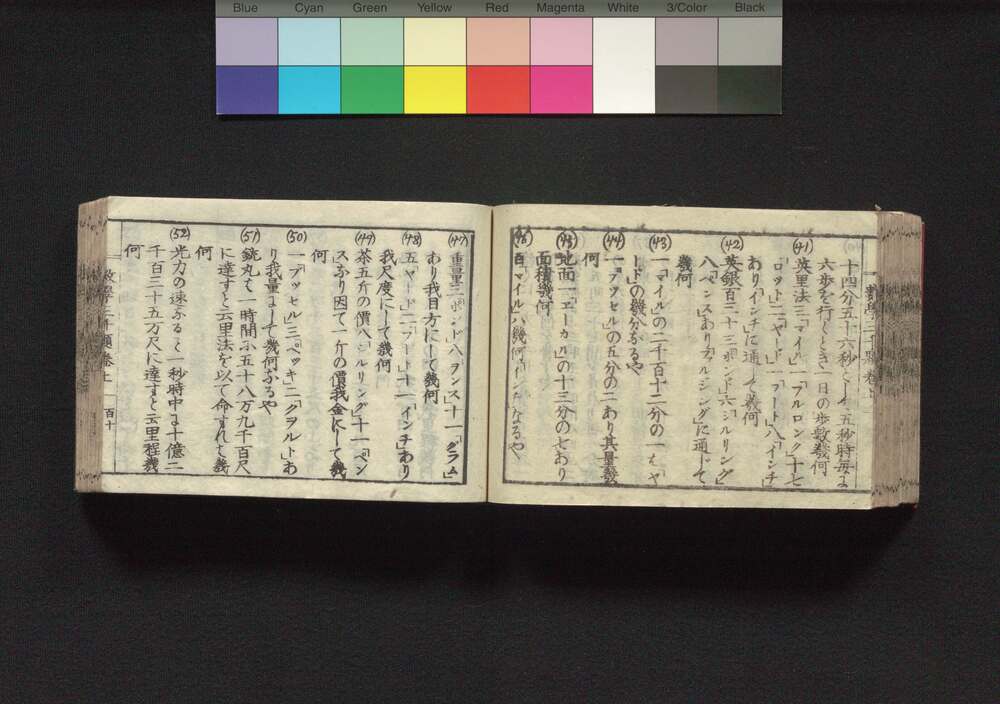 Blue Cyan Green Yellow Red Magenta White 3/Color Black
十四分五十六秒にして五秒時毎に
六歩を行くとき一日の歩数幾何
(41) 英里法三「マイル」一「フルロンク」十七
「ロット」二「ヤード」一「フート」八「インチ」
あり「インチ」に通して幾何
(42) 英銀百三十三「ポンド」六「シルリング」
八「ペンス」あり
幾何
(43) 一「マイル」の二千百十二分の一は「ヤ
ード」の幾分なるや
(44) 一「ブッセル」の五分の二あり其量幾
何
(45) 地面一「エーカル」の十三分の七あり
面積幾何
(46) 百「マイル」ハ幾何「インチ」なるや
(47) 重量二「ポンド」八「ヲンス」十一「グラム」
あり我目方にして幾何
(48) 五「ヤード」二「フート」十一「インチ」あり
我尺度にして幾何
(49) 茶五斤の價八「シルリング」十一「ペン
ス」なり因て一斤の價我金にして幾
何
(50) 一「ブッセル」三「ペッキ」二「クヲルト」あ
り我量にして幾何なるや
(51) 銃丸て一時間に五十八万九千百尺
に達すと云里法を以て命すれて幾
何
(52) 光力の速なると一秒時中に十億二
千百三十五万尺に達すと云里程幾
何
数学三千題巻上
百十